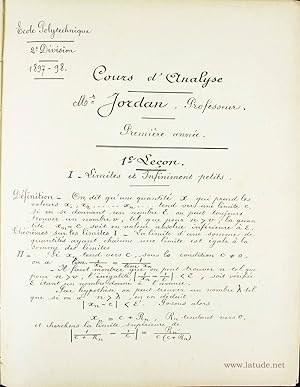 Ecole Polytechnique
2e Division
1897-98.
Cours d'Analyse
Mr Jordan, Professeur.
Première année.
1e Leçon.
I - Limites et Infiniment petits.
Définition - On dit qu'une quantité x qui prend les
valeurs x1, x2, ... xn ... tend vers une limite c,
si en se donnant un nombre ε on peut toujours
trouver un nombre ν, tel que pour n > ν la quan
tité xn - c soit en valeur absolue inférieure à ε.
Théorèmes sur les limites I - La limite d'une somme de
quantités ayant chacune une limite est égale à la
somme des limites
II - Si xn tend vers c, sous la condition c ≠ 0,
on a
- Il faut montrer que on peut trouver n tel que
pour n > ν, l'inégalité | 1/xn - 1/c | < ε, soit vérifiée
ε étant un nombre donné à l'avance.
Par hypothèse on peut trouver un nombre λ tel
que si on a n > λ, on en déduit
| xn - c | < ε'. Posons alors
xn = c + Rn, Rn tendant vers 0,
et cherchons la limite supérieure de
| 1/(c + Rn) - 1/c | = Rn/(c(c + Rn))
www.latude.net